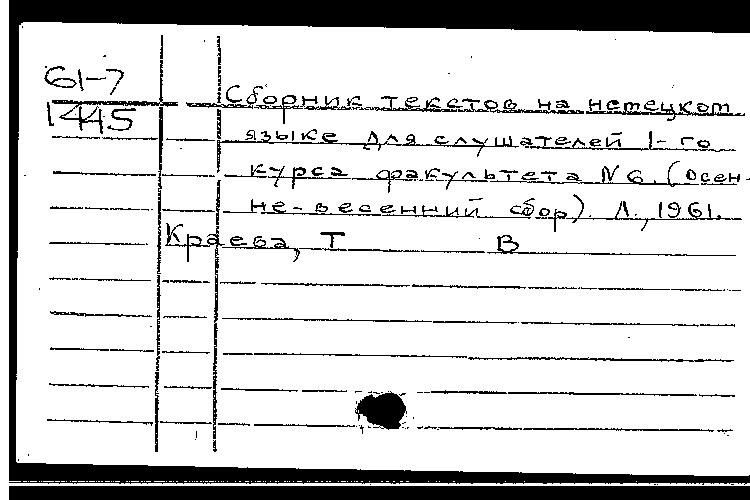 61-7
1445
Сборник текстов на немецком
языке для слушателей 1-го
курса факультета N 6. (осен-
не-весенний сбор). Л., 1961.
Краева, Т В